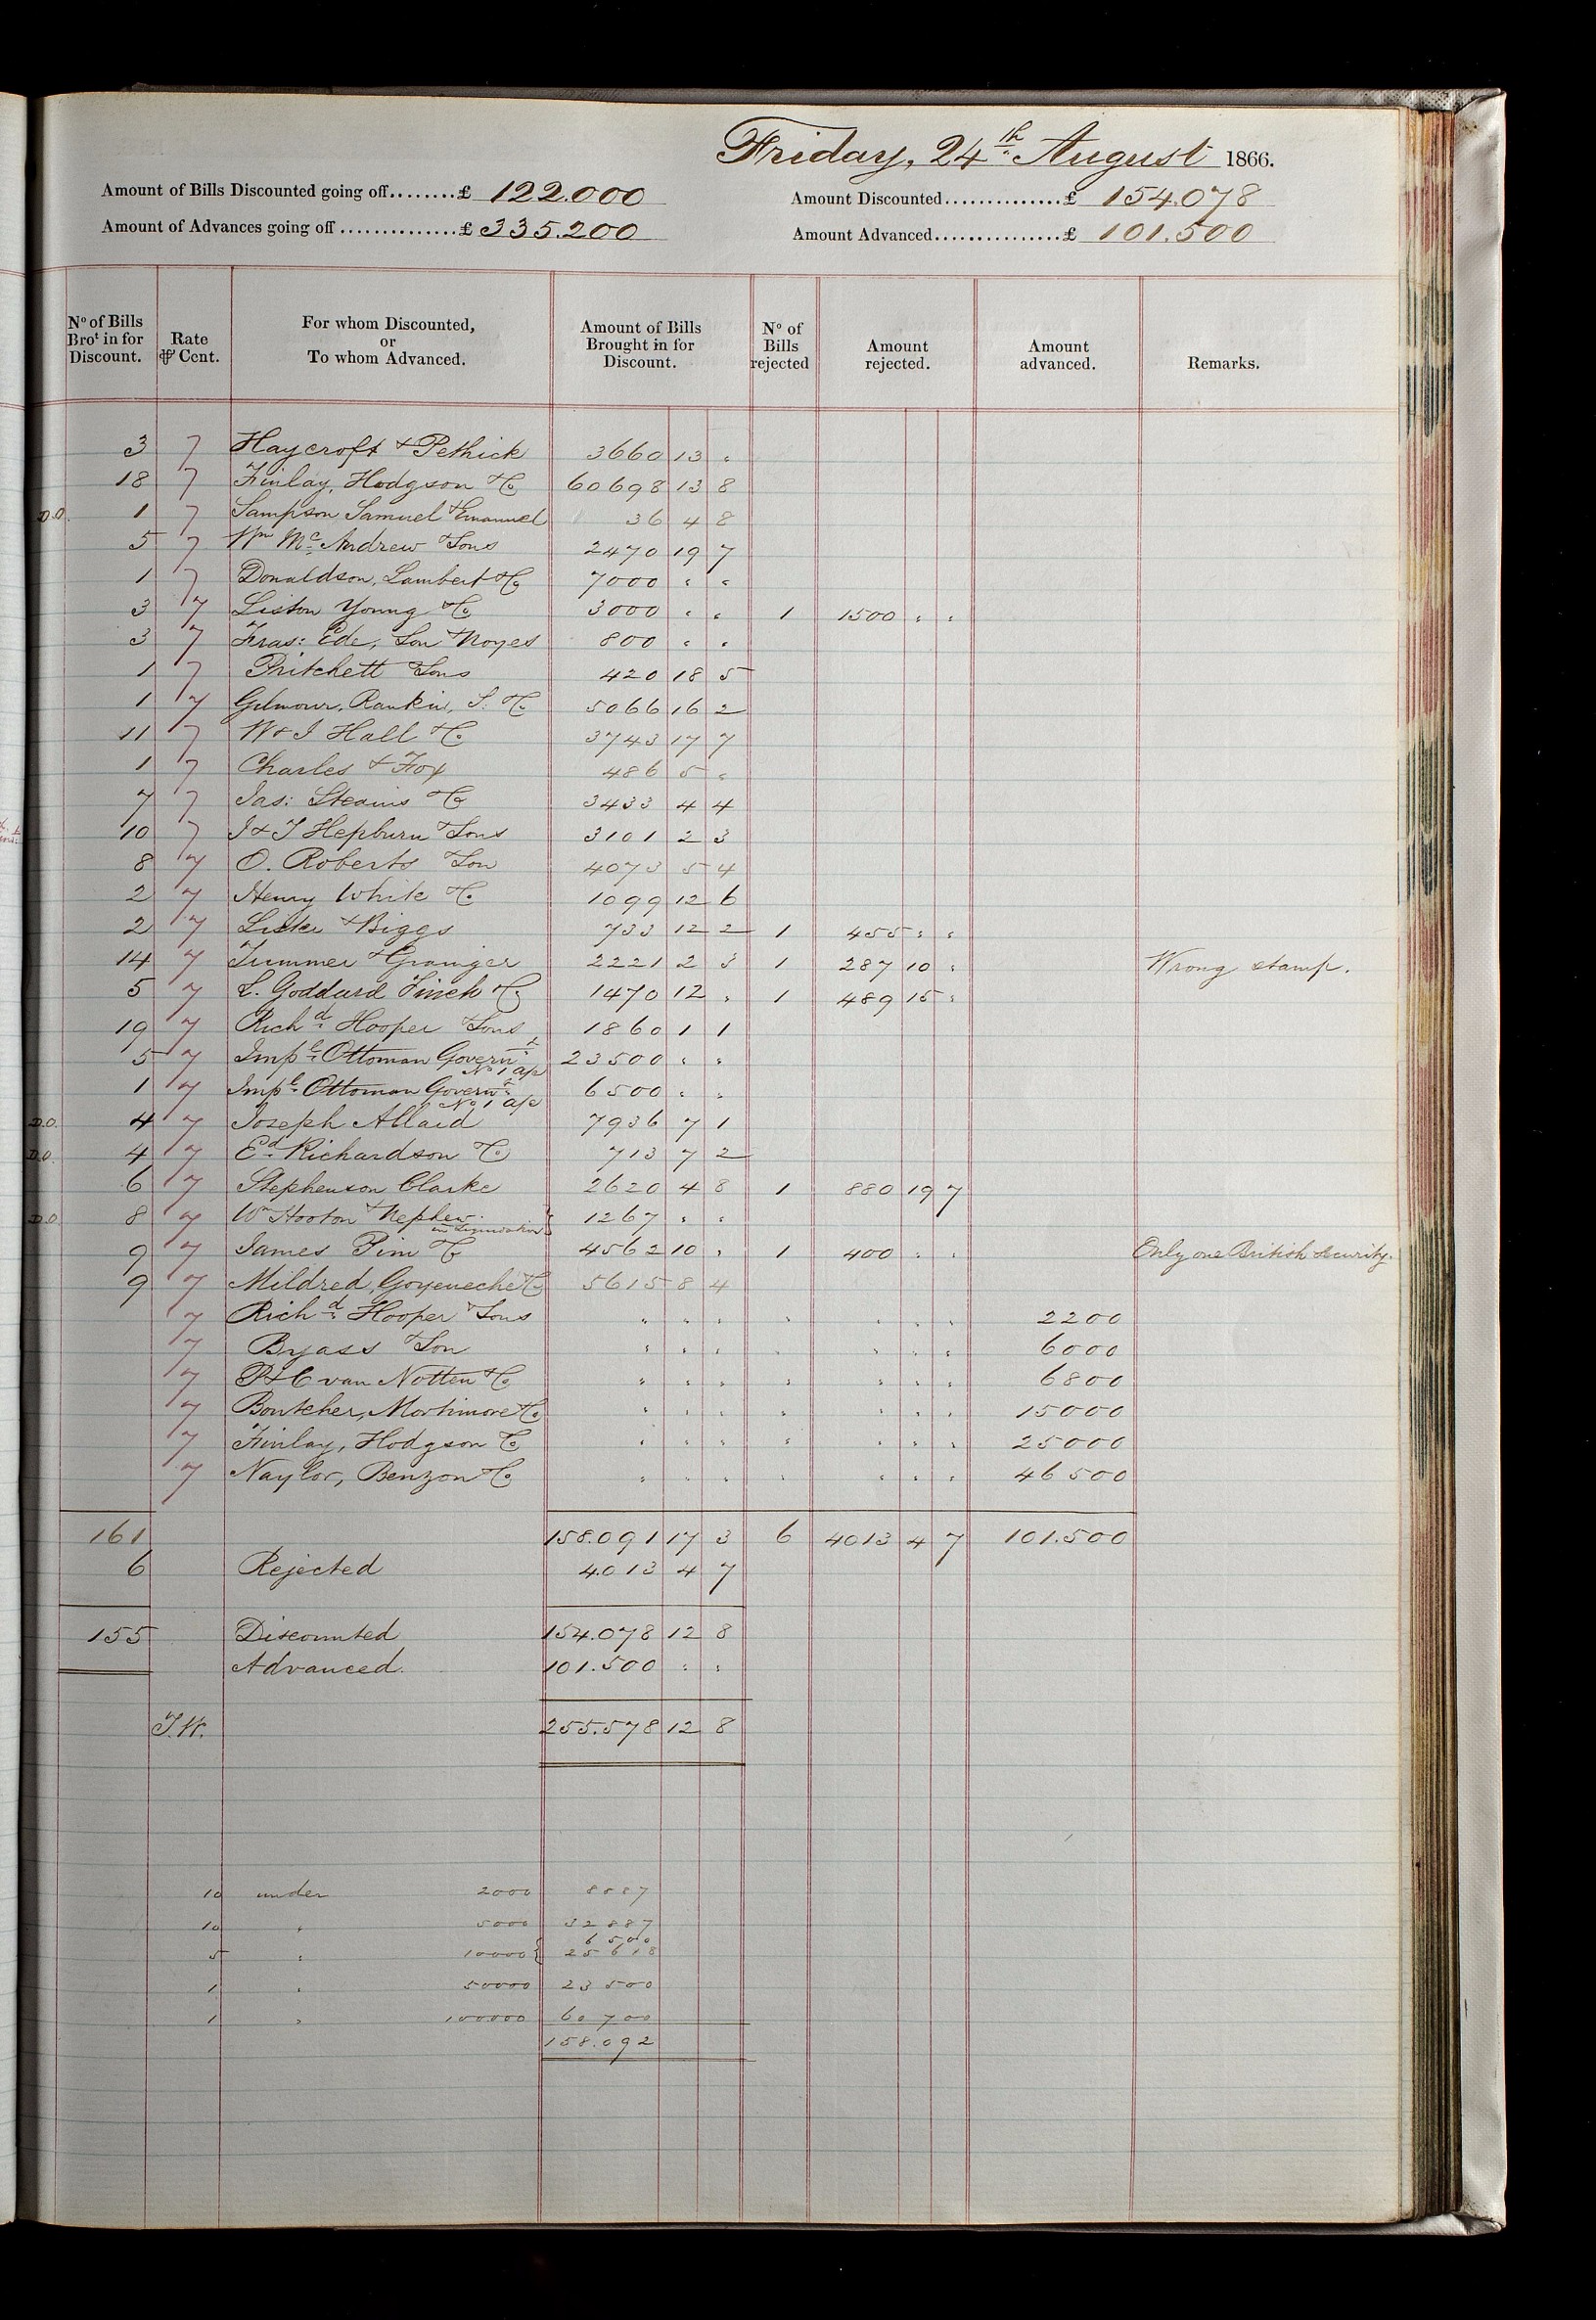 Friday, 24th August 1866.
Amount of Bills Discounted going off........£ 122.000
Amount Discounted..............£ 154.078
Amount of Advances going off..............£ 335.200
Amount Advanced................£ 101.500
No of Bills Brot in for Discount. Rate ⅌ Cent. For whom Discounted, or To whom Advanced. Amount of Bills Brought in for Discount. No of Bills rejected Amount rejected. Amount advanced. Remarks.
3 7 Haycroft & Pethick 3660 13 "
18 7 Finlay, Hodgson & Co 60698 13 8
D.O. 1 7 Sampson Samuel & Emanuel 36 4 8
5 7 Wm McAndrew & Sons 2470 19 7
1 7 Donaldson, Lambert & Co 7000 " "
3 7 Liston Young & Co 3000 " " 1 1500 " "
3 7 Fras: Ede, Son & Noyes 800 " "
1 7 Pritchett & Sons 420 18 5
1 7 Gilmour, Rankin, S. & Co 5066 16 2
11 7 W & J Hall & Co 3743 17 7
1 7 Charles & Fox 486 5 "
7 7 Jas: Steains & Co 3433 4 4
10 7 J & T Hepburn & Sons 3101 2 3
8 7 O. Roberts & Son 4073 5 4
2 7 Henry White & Co 1099 12 6
2 7 & Biggs 733 12 2 1 455 " "
14 7 & Grainger 2221 2 3 1 287 10 " Wrong stamp.
5 7 L. Goddard Finch & Co 1470 12 " 1 489 15 "
19 7 Richd Hooper & Sons 1860 1 1
5 7 Impl Ottoman Governt No 1 a/c 23500 " "
1 7 Impl Ottoman Governt No 1 a/c 6500 " "
D.O. 4 7 Joseph 7936 7 1
D.O. 4 7 Ed Richardson & Co 713 7 2
6 7 Stephenson Clarke 2620 4 8 1 880 19 7
D.O. 8 7 Wm Hooton & Nephew in Liquidation 1267 " "
9 7 James Pim & Co 4562 10 " 1 400 " " Only one British Security.
9 7 Mildred, Goyeneche & Co 5615 8 4
7 Richd Hooper & Sons " " " " " " " 2200
7 Byass & Son " " " " " " " 6000
7 P & C van Notten & Co " " " " " " " 6800
7 Boutcher, Mortimore & Co " " " " " " " 15000
7 Finlay, Hodgson & Co " " " " " " " 25000
7 Naylor, Benzon & Co " " " " " " " 46500
161 158.091 17 3 6 4013 4 7 101.500
6 Rejected 4.013 4 7
155 Discounted 154.078 12 8
Advanced. 101.500 " "
J.W. 255.578 12 8
10 under 2000 8887
10 " 5000 32887
6500
5 " 10000 { 25618
1 " 50000 23500
1 " 100000 60700
158.092